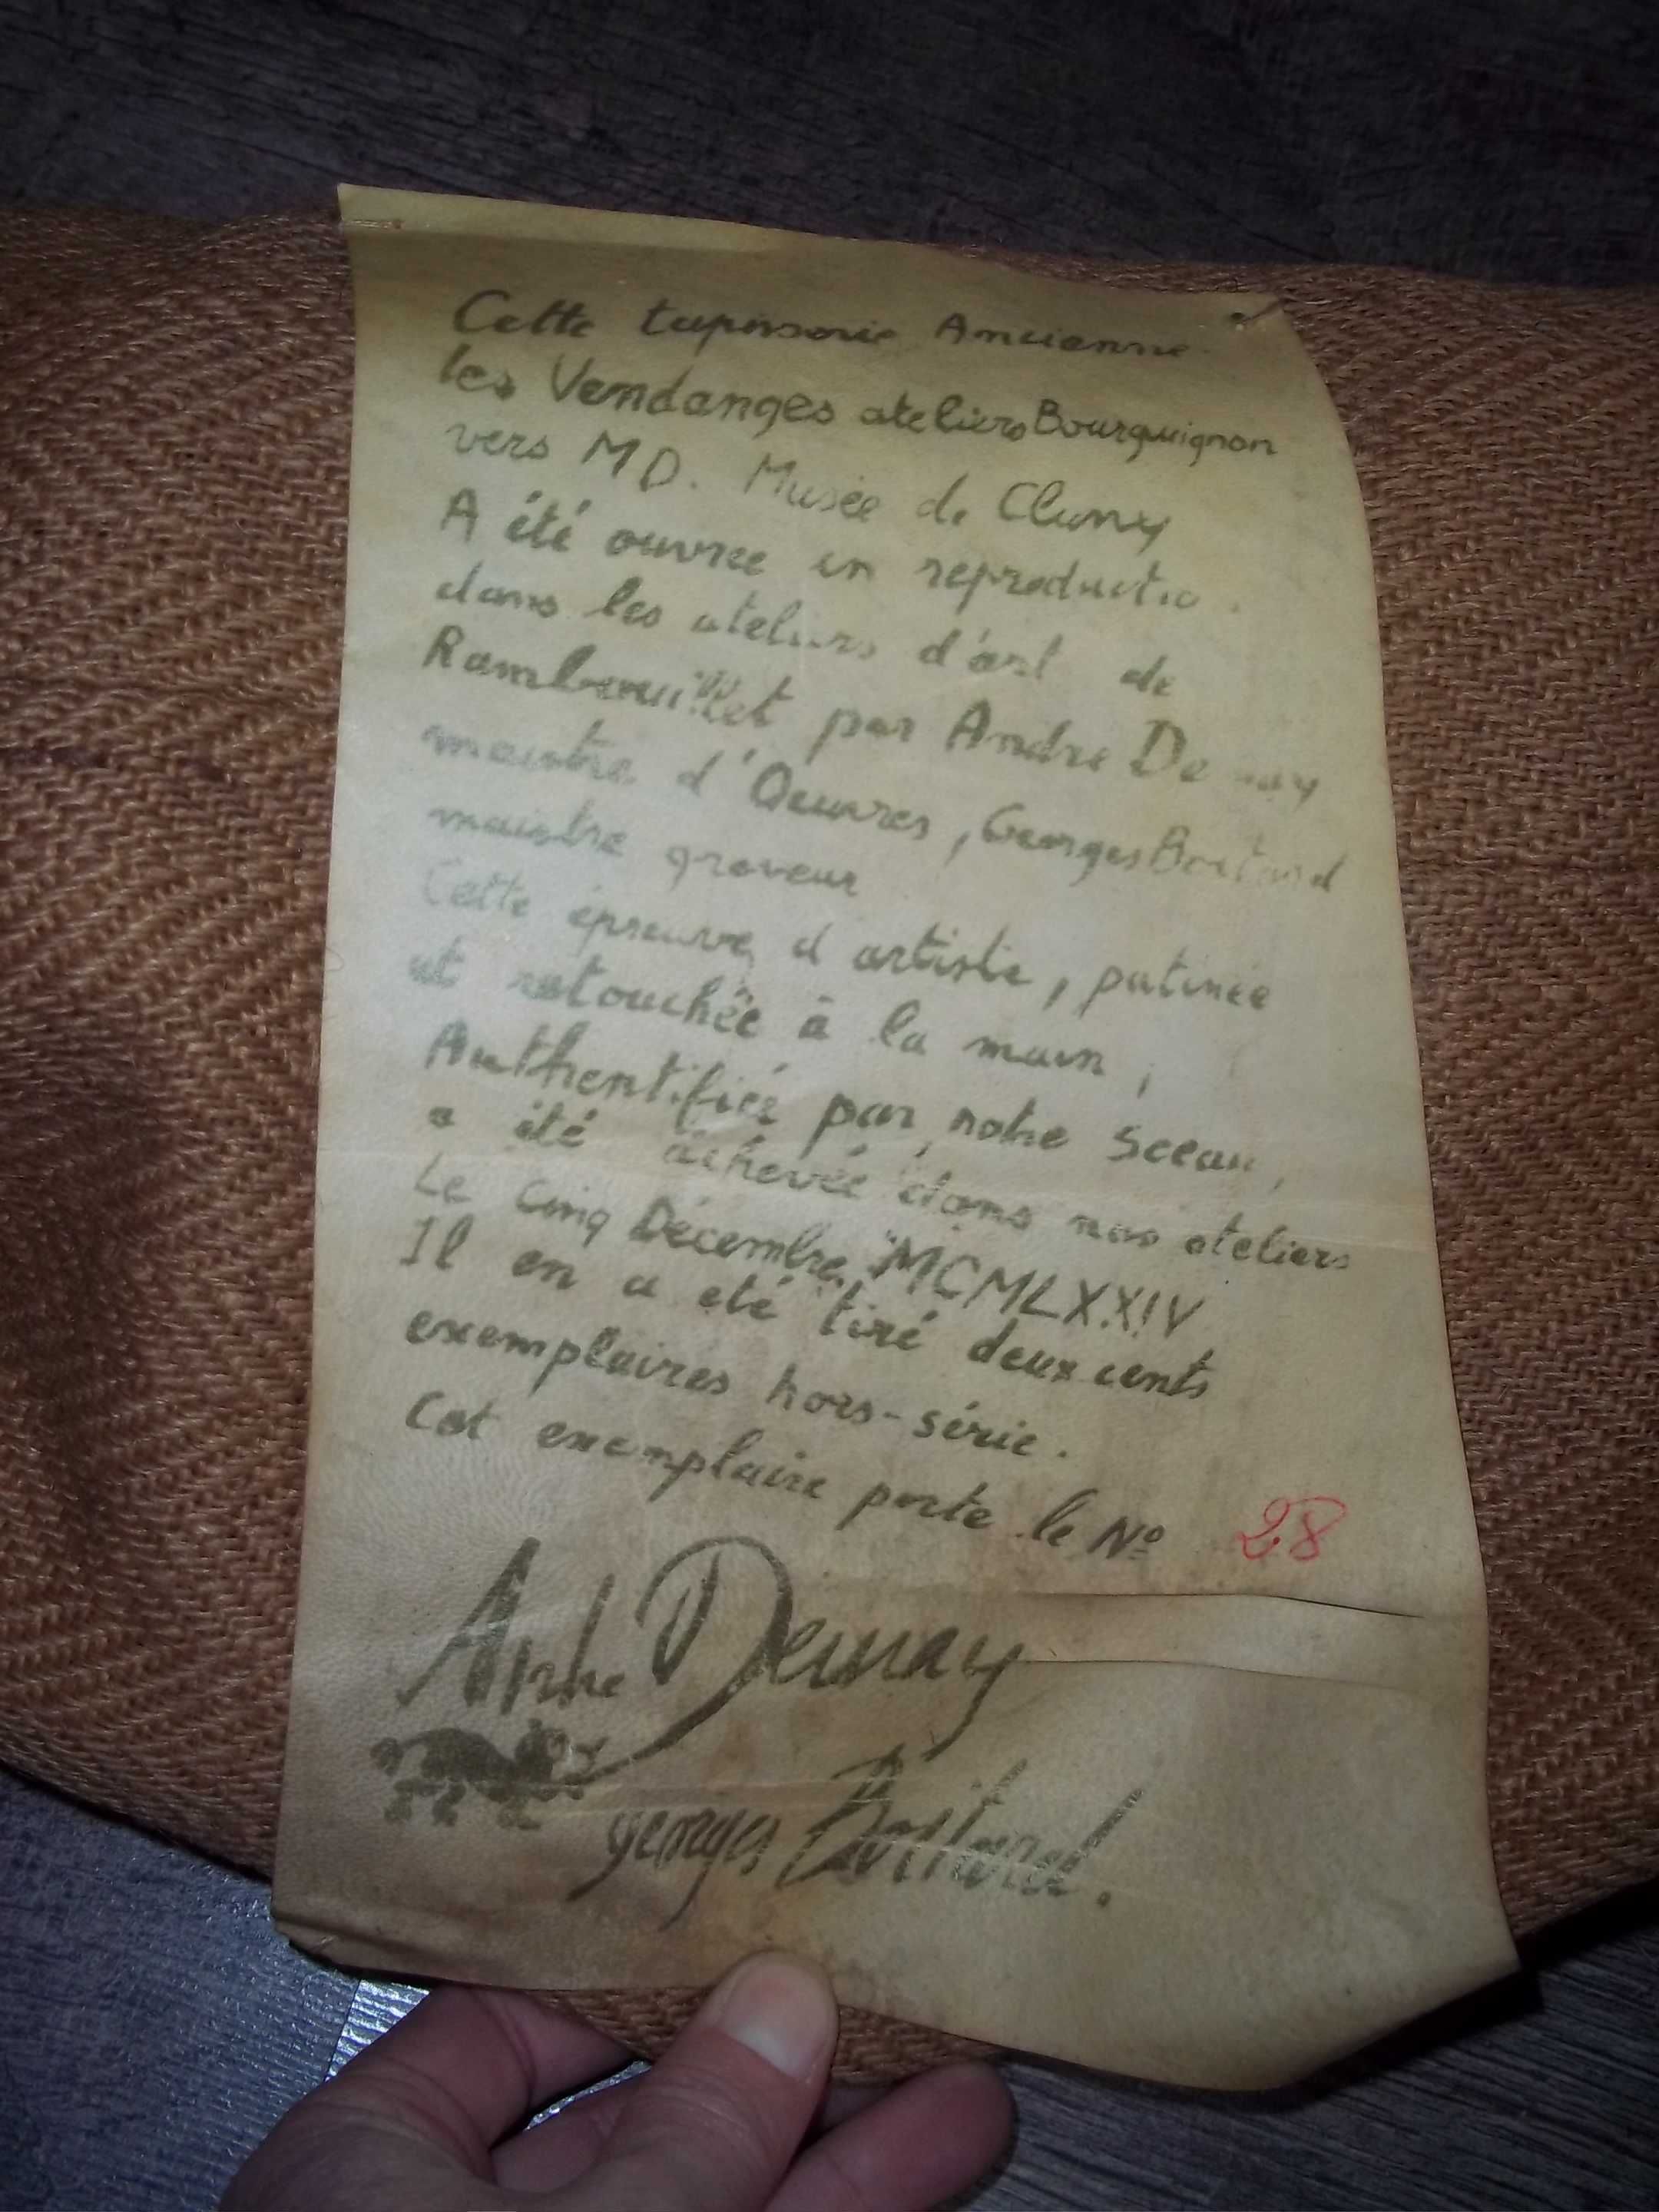 Cette tapisserie Ancienne
les Vendanges ateliers Bourguignon
vers MD. Musée de Cluny
A été ouvree en reproductio .
dans les ateliers d'art de
Rambouillet par Andre De may
maistre d'Oeuvres, Georges Boitard
maistre graveur
Cette épreuve d artiste, patinée
et retouchée à la main,
Authentifiée par notre Sceau,
a été achevée dans nos ateliers
Le Cinq Décembre MCMLXXIV
Il en a eté tiré deux cents
exemplaires hors-série.
Cet exemplaire porte le Nº 28
Andre Demay
georges Boitard.